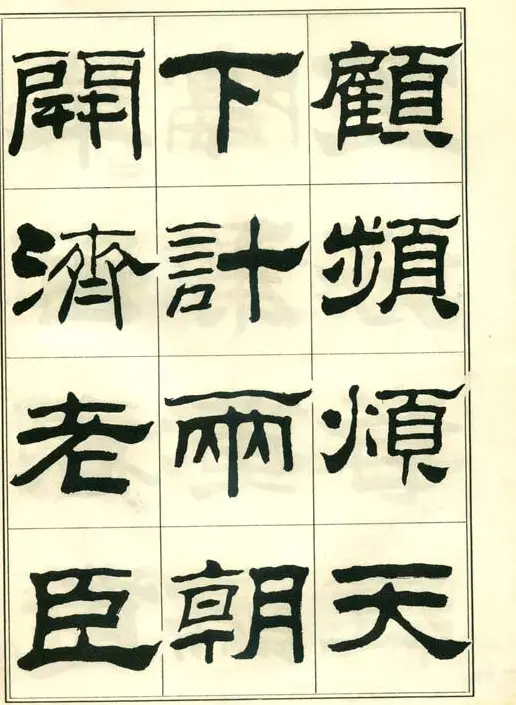 顧頻煩天
下計兩朝
開濟老臣